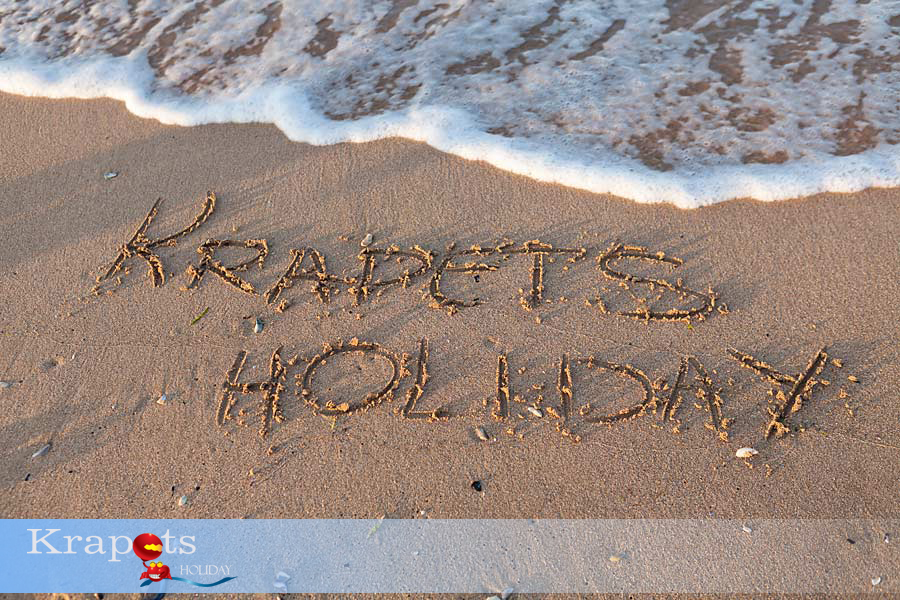 KRAPETS
HOLIDAY
Krapets
HOLIDAY